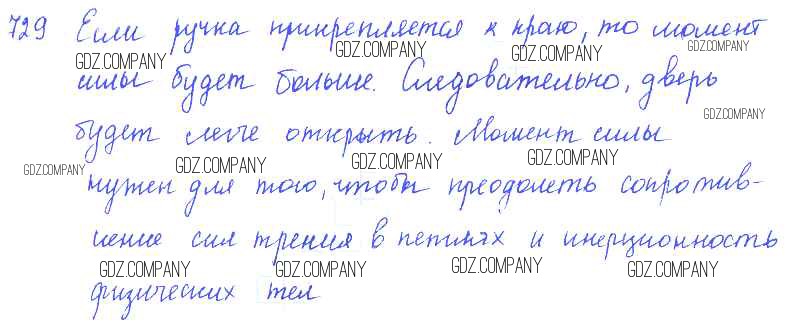 729 Если ручка прикрепляется к краю, то момент
GDZ.COMPANY GDZ.COMPANY GDZ.COMPANY GDZ.COMPANY
силы будет больше. Следовательно, дверь
GDZ.COMPANY
будет легче открыть. Момент силы
GDZ.COMPANY GDZ.COMPANY GDZ.COMPANY GDZ.COMPANY
нужен для того, чтобы преодолеть сопротив-
ление сил трения в петлях и инерционность
GDZ.COMPANY GDZ.COMPANY GDZ.COMPANY GDZ.COMPANY
физических тел